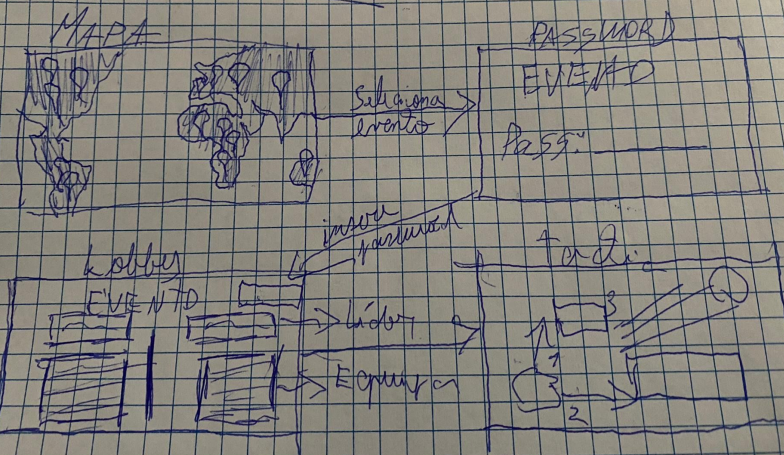 MAPA
Seleciona
evento
PASSWORD
EVENTO
Pass:
insere
password
Lobby
EVENTO
Líder
Equipa
3
1
2